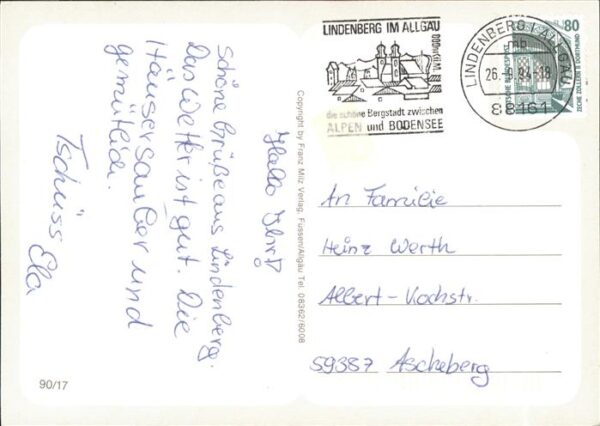 Hallo Ihr!
Schöne Grüße aus Lindenberg.
Das Wetter ist gut. Die
Häuser sauber und
gemütlich.
Tschüss Ela
90/17
Copyright by Franz Milz Verlag, Füssen/Allgäu Tel. 08362/6008
LINDENBERG IM ALLGÄU
die schöne Bergstadt zwischen
ALPEN und BODENSEE
LINDENBERG / ALLGÄU
mb
88161
80
DEUTSCHE BUNDESPOST
ZECHE ZOLLERN II DORTMUND
An Familie
Heinz Werth
Albert-Kochstr.
59387 Ascheberg